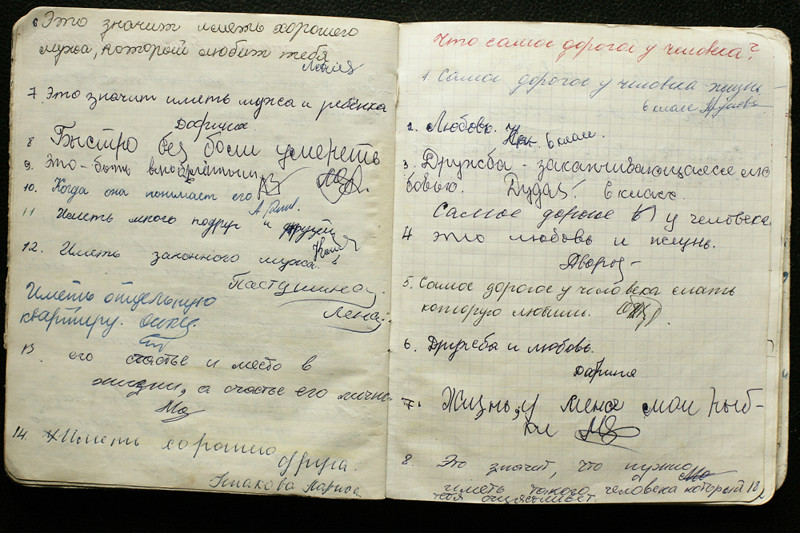 6 Это значит иметь хорошего
мужа, который любит тебя
7. Это значит иметь мужа и ребёнка
8 Быстро без боли умереть
9. Это - быть
10. Когда она понимает его
11 Иметь много подруг и друзей
12. Иметь законного мужа.
Пастушина
Лена
Иметь отдельную
квартиру.
13 его счастье и место в
жизни, а счастье его
14. Иметь хорошего
друга.
Что самое дорогое у человека?
1 Самое дорогое у человека жизнь
6 класс
2. Любовь. 6 класс.
3. Дружба - заканчивающаяся лю
бовью. 6 класс
Самое дорогое у человека
4 это любовь и жизнь.
5. Самое дорогое у человека
которую любит.
6. Дружба и любовь.
Дарина
7. Жизнь, у меня мои
8. Это значит, что нужно
иметь такого человека который